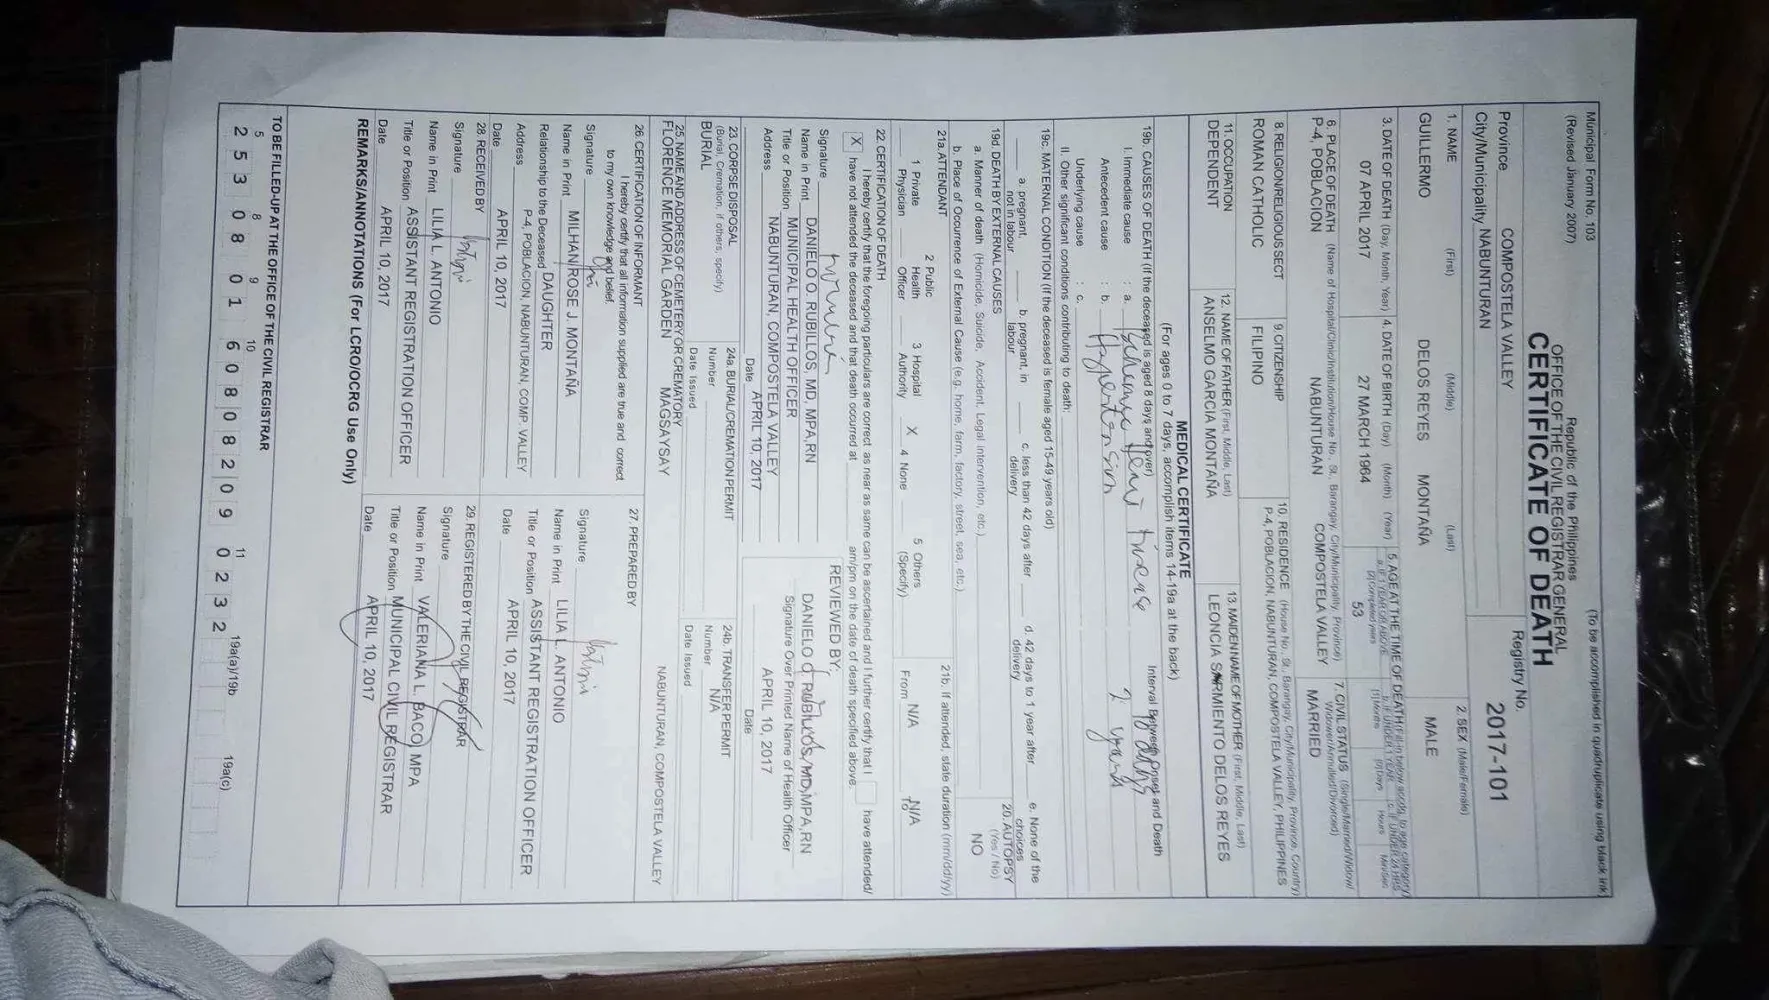 Municipal Form No. 103
(Revised January 2007)
(To be accomplished in quadruplicate using black ink)
Republic of the Philippines
OFFICE OF THE CIVIL REGISTRAR GENERAL
CERTIFICATE OF DEATH
Province COMPOSTELA VALLEY
City/Municipality NABUNTURAN
Registry No.
2017-101
1. NAME (First) (Middle) (Last)
GUILLERMO DELOS REYES MONTAÑA
2. SEX (Male/Female)
MALE
3. DATE OF DEATH (Day, Month, Year)
07 APRIL 2017
4. DATE OF BIRTH (Day) (Month) (Year)
27 MARCH 1964
5. AGE AT THE TIME OF DEATH (Fill-in below accdg. to age category)
a. IF 1 YEAR OR ABOVE
[2] Completed years
53
b. IF UNDER 1 YEAR
[1] Months [0] Days
c. IF UNDER 24 HRS
Hours Min/Sec
6. PLACE OF DEATH (Name of Hospital/Clinic/Institution/House No., St., Barangay, City/Municipality, Province)
P-4, POBLACION NABUNTURAN COMPOSTELA VALLEY
7. CIVIL STATUS (Single/Married/Widow/
Widower/Annulled/Divorced)
MARRIED
8. RELIGION/RELIGIOUS SECT
ROMAN CATHOLIC
9. CITIZENSHIP
FILIPINO
10. RESIDENCE (House No., St., Barangay, City/Municipality, Province, Country)
P-4, POBLACION, NABUNTURAN, COMPOSTELA VALLEY, PHILIPPINES
11. OCCUPATION
DEPENDENT
12. NAME OF FATHER (First, Middle, Last)
ANSELMO GARCIA MONTAÑA
13. MAIDEN NAME OF MOTHER (First, Middle, Last)
LEONCIA SARMIENTO DELOS REYES
MEDICAL CERTIFICATE
(For ages 0 to 7 days, accomplish items 14-19a at the back)
19b. CAUSES OF DEATH (If the deceased is aged 8 days and over)
Interval Between Onset and Death
I. Immediate cause : a. Ischemic Heart Disease
Antecedent cause : b. Hypertension 2 years
Underlying cause : c.
II. Other significant conditions contributing to death:
19c. MATERNAL CONDITION (If the deceased is female aged 15-49 years old)
a. pregnant, not in labour
b. pregnant, in labour
c. less than 42 days after delivery
d. 42 days to 1 year after delivery
e. None of the choices
19d. DEATH BY EXTERNAL CAUSES
a. Manner of death (Homicide, Suicide, Accident, Legal Intervention, etc.)
b. Place of Occurrence of External Cause (e.g. home, farm, factory, street, sea, etc.)
20. AUTOPSY
(Yes / No)
NO
21a. ATTENDANT
1 Private Physician
2 Public Health Officer
3 Hospital Authority
X 4 None
5 Others (Specify)
21b. If attended, state duration (mm/dd/yy)
From N/A To N/A
22. CERTIFICATION OF DEATH
I hereby certify that the foregoing particulars are correct as near as same can be ascertained and I further certify that I have attended/
X have not attended the deceased and that death occurred at am/pm on the date of death specified above.
Signature
Name in Print DANIELO O. RUBILLOS, MD, MPA,RN
Title or Position MUNICIPAL HEALTH OFFICER
Address NABUNTURAN, COMPOSTELA VALLEY
Date APRIL 10, 2017
REVIEWED BY:
DANIELO O. RUBILLOS, MD,MPA,RN
Signature Over Printed Name of Health Officer
APRIL 10, 2017
Date
23. CORPSE DISPOSAL
(Burial, Cremation, if others, specify)
BURIAL
24a. BURIAL/CREMATION PERMIT
Number
Date Issued
24b. TRANSFER PERMIT
Number N/A
Date Issued
25. NAME AND ADDRESS OF CEMETERY OR CREMATORY
FLORENCE MEMORIAL GARDEN MAGSAYSAY NABUNTURAN, COMPOSTELA VALLEY
26. CERTIFICATION OF INFORMANT
I hereby certify that all information supplied are true and correct
to my own knowledge and belief.
Signature
Name in Print MILHAN ROSE J. MONTAÑA
Relationship to the Deceased DAUGHTER
Address P-4, POBLACION, NABUNTURAN, COMP. VALLEY
Date APRIL 10, 2017
27. PREPARED BY
Signature
Name in Print LILIA L. ANTONIO
Title or Position ASSISTANT REGISTRATION OFFICER
Date APRIL 10, 2017
28. RECEIVED BY
Signature
Name in Print LILIA L. ANTONIO
Title or Position ASSISTANT REGISTRATION OFFICER
Date APRIL 10, 2017
29. REGISTERED BY THE CIVIL REGISTRAR
Signature
Name in Print VALERIANA L. BACO, MPA
Title or Position MUNICIPAL CIVIL REGISTRAR
Date APRIL 10, 2017
REMARKS/ANNOTATIONS (For LCRO/OCRG Use Only)
TO BE FILLED-UP AT THE OFFICE OF THE CIVIL REGISTRAR
5 8 9 10 11 19a(a)/19b 19a(c)
2 5 3 0 8 0 1 6 0 8 0 8 2 0 9 0 2 3 2